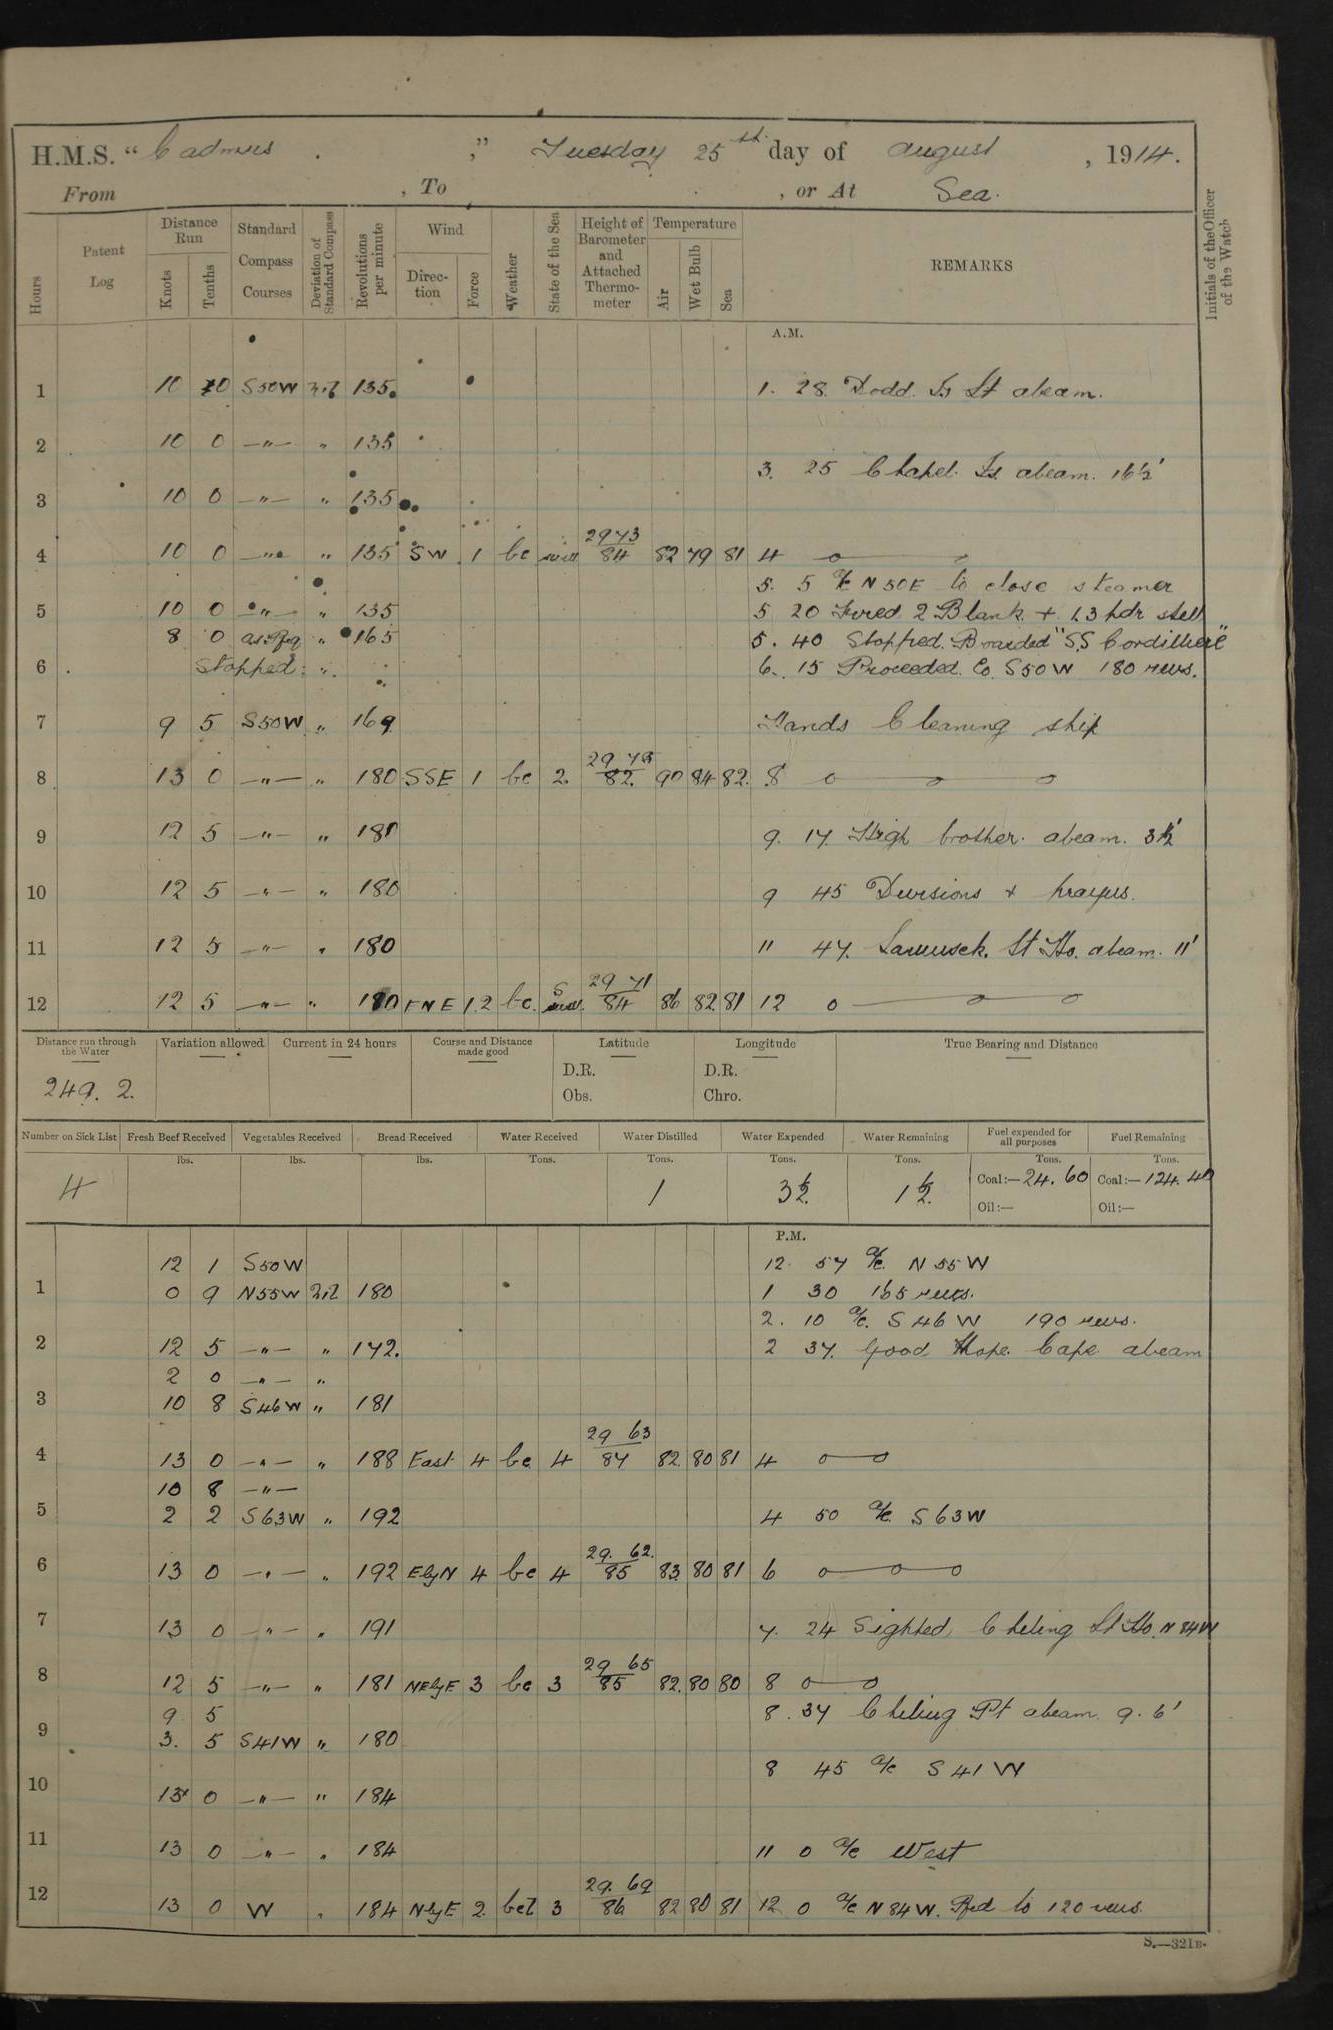 H.M.S. "Cadmus ," Tuesday 25th day of August , 1914.
From , To , or At Sea.
Hours Patent Log Distance Run Knots Tenths Standard Compass Courses Deviation of Standard Compass Revolutions per minute Wind Direction Force Weather State of the Sea Height of Barometer and Attached Thermometer Temperature Air Wet Bulb Sea REMARKS Initials of the Officer of the Watch
A.M.
1 10 0 S50W Nil 135. 1. 28 Dodd Is Lt abeam.
2 10 0 —"— " 135
3. 25 Chapel Is. abeam. 16½'
3 10 0 —"— " 135
4 10 0 —"— " 135 SW 1 bc 29 73 / 84 82 79 81 4
5. 5 a/c N50E to close steamer
5 10 0 —"— " 135 5 20 Fired 2 Blank + 1.3 pdr shell
8 0 as Req " 165 5. 40 Stopped. Boarded "SS Cordilliere"
6 Stopped " 6. 15 Proceeded Co. S50W 180 revs.
7 9 5 S50W " 169 Hands Cleaning ship
8 13 0 —"— " 180 SSE 1 bc 2 29 73 / 82 90 84 82 8
9 12 5 —"— " 181 9. 17 High brother abeam. 3½'
10 12 5 —"— " 180 9 45 Divisions + prayers.
11 12 5 —"— " 180 11 47. Lamusek. Lt Ho. abeam. 11'
12 12 5 —"— " 180 ENE 1.2 bc. 29 71 / 84 86 82 81 12 0
Distance run through the Water Variation allowed Current in 24 hours Course and Distance made good Latitude Longitude True Bearing and Distance
D.R. D.R.
249. 2.
Obs. Chro.
Number on Sick List Fresh Beef Received Vegetables Received Bread Received Water Received Water Distilled Water Expended Water Remaining Fuel expended for all purposes Fuel Remaining
lbs. lbs. lbs. Tons. Tons. Tons. Tons. Tons. Tons.
4 1 3½ 1½ Coal:—24.60 Coal:—124.40
Oil:— Oil:—
P.M.
12 1 S50W 12. 57 a/c. N55W
1 0 9 N55W Nil 180 1 30 165 revs.
2. 10 a/c. S46W 190 revs.
2 12 5 —"— " 172. 2 37. Good Hope Cape abeam
2 0 —"— "
3 10 8 S46W " 181
4 13 0 —"— " 188 East 4 bc 4 29 63 / 84 82 80 81 4
10 8 —"—
5 2 2 S63W " 192 4 50 a/c. S63W
6 13 0 —"— " 192 EbyN 4 bc 4 29. 62. / 85 83 80 81 6
7 13 0 —"— " 191 7. 24 Sighted Chiling Lt Ho. N84W
8 12 5 —"— " 181 NEbyE 3 bc 3 29 65 / 85 82 80 80 8
9 5 8. 37 Chiling Pt abeam 9.6'
9 3. 5 S41W " 180
8 45 a/c S41W
10 13 0 —"— " 184
11 13 0 —"— " 184 11 0 a/c West
12 13 0 W " 184 NbyE 2 bcl 3 29. 69 / 86 82 80 81 12 0 a/c N84W. Red to 120 revs.
S.—321B.